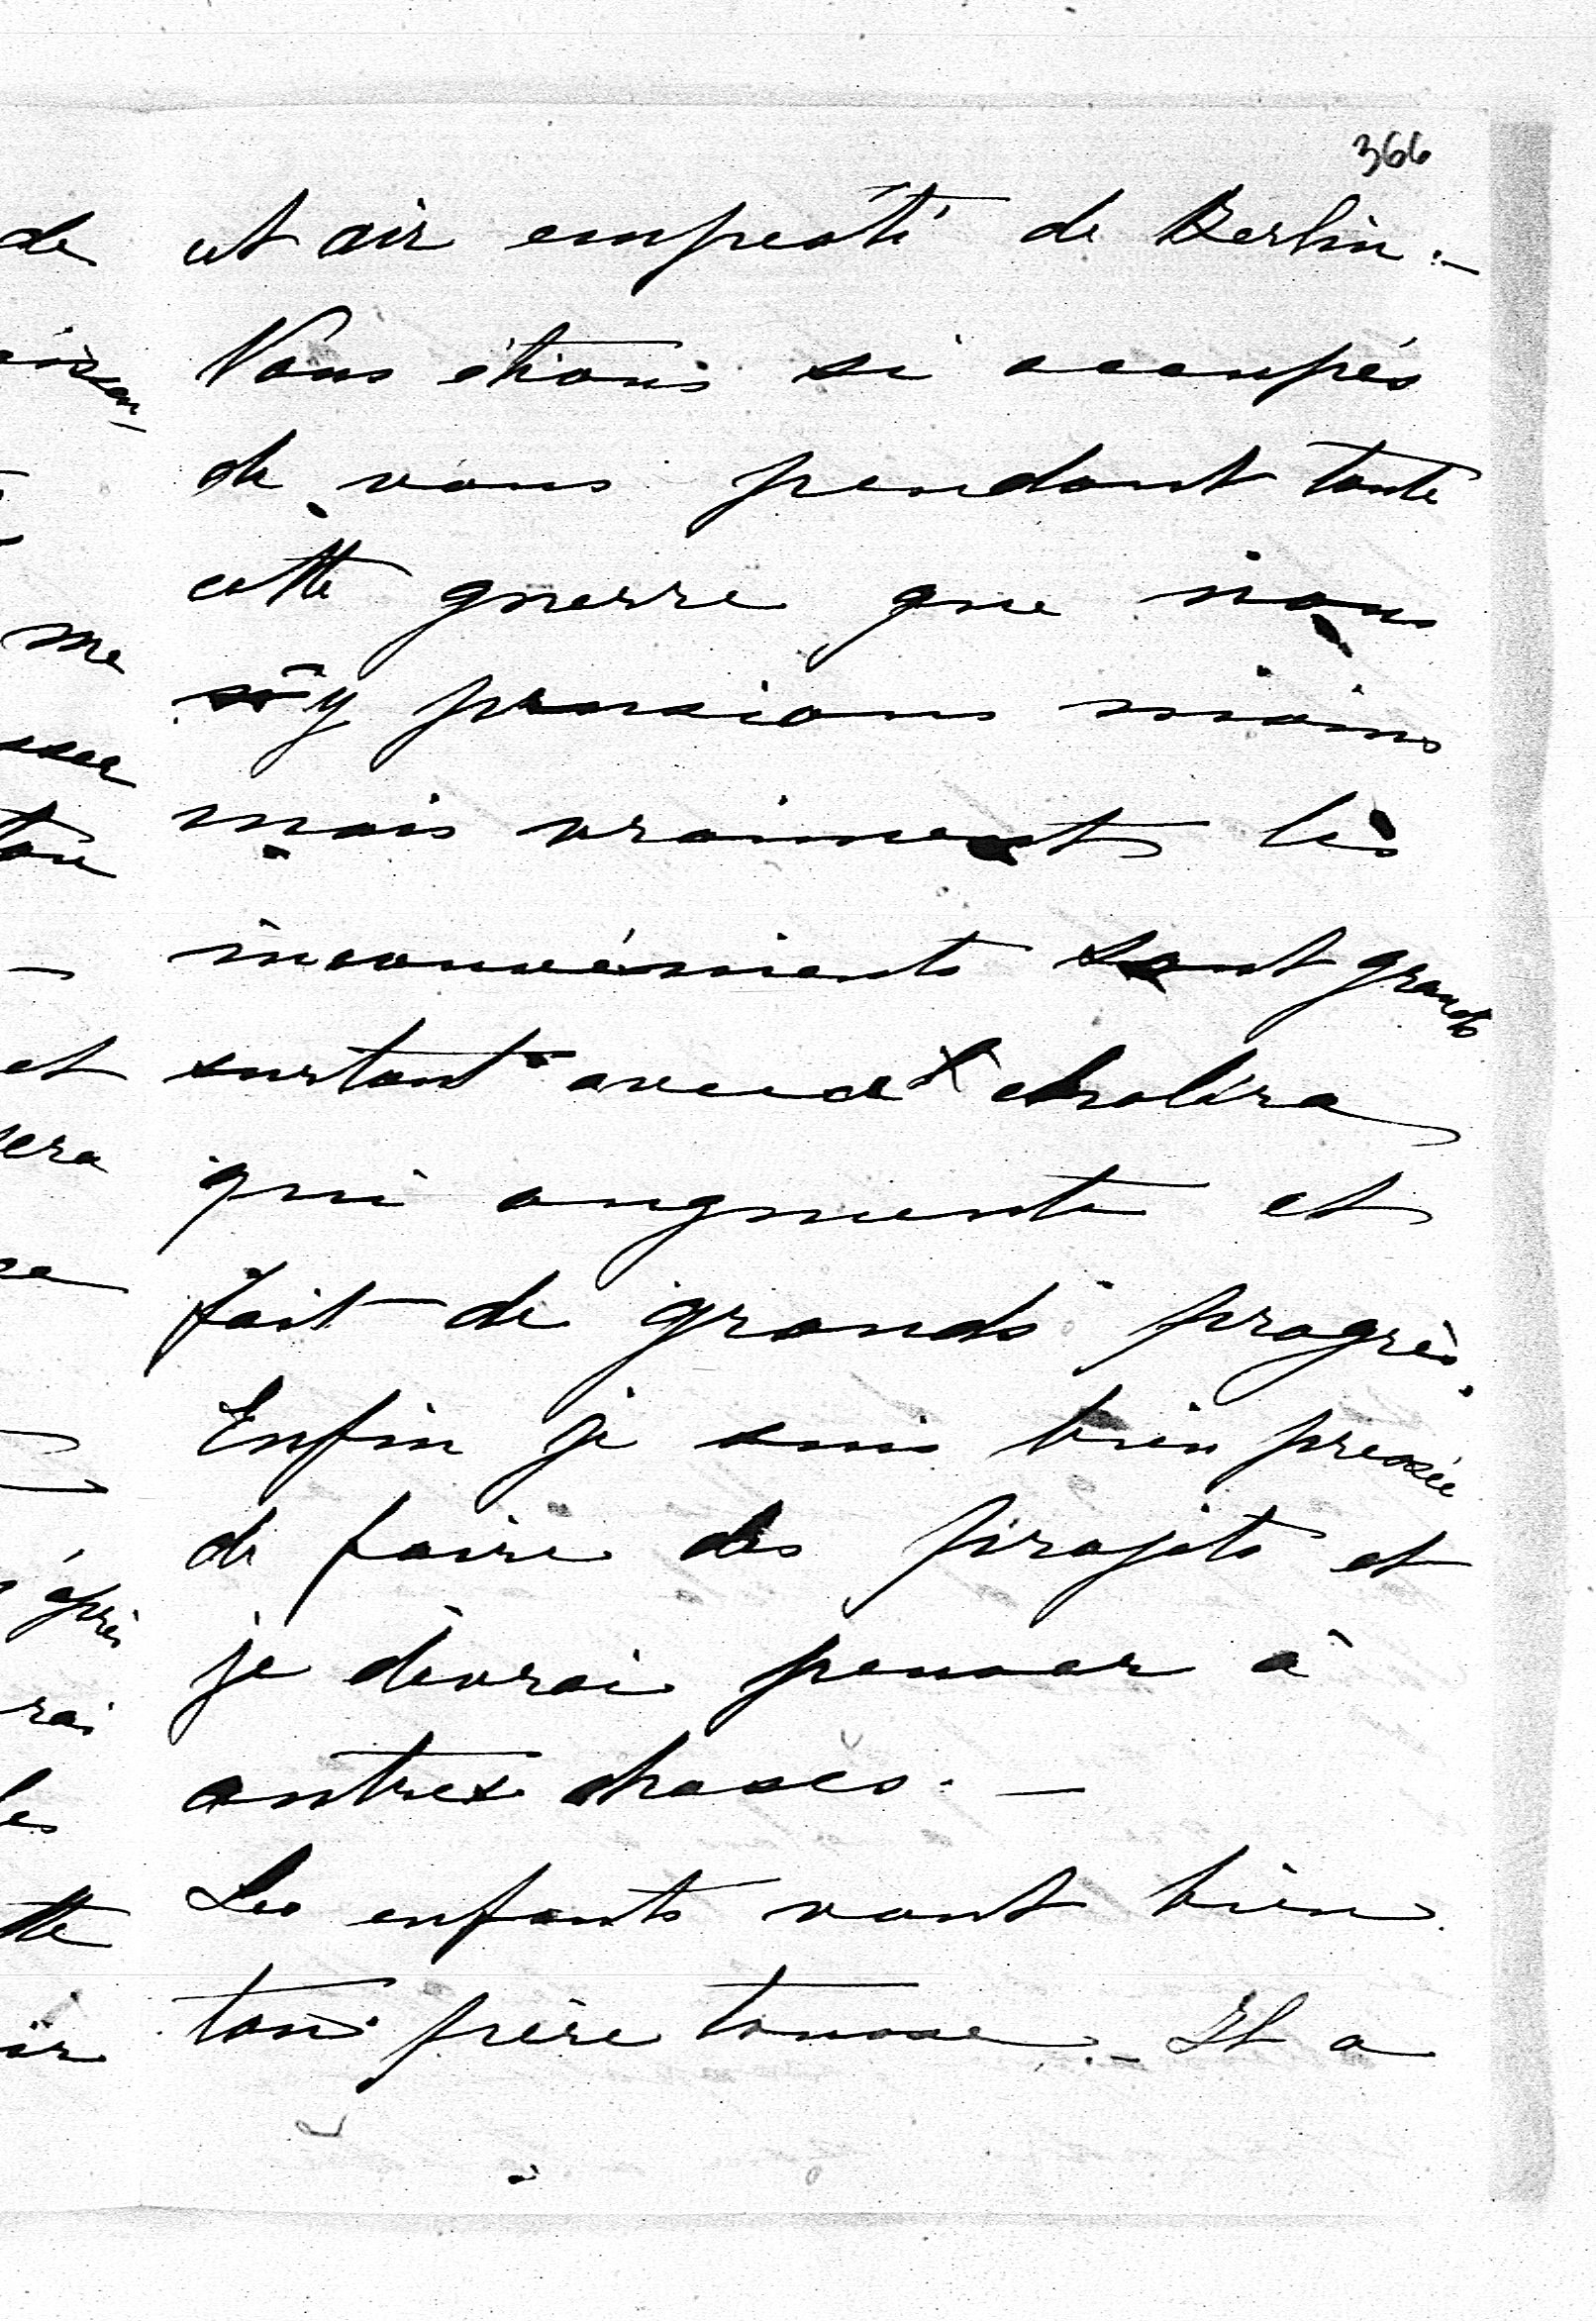 366
cet air empesté de Berlin. –
Nous étions si occupés
de vous pendant toute
cette guerre que nous
n'y pensions moins
mais vraiment les
inconvénients sont grands
surtout avec le choléra
qui augmente et
fait de grands progrès.
Enfin je suis bien pressée
de faire des projets et
je devrai penser à
autres choses. –
Les enfants vont bien
ton frère tousse. – Il a